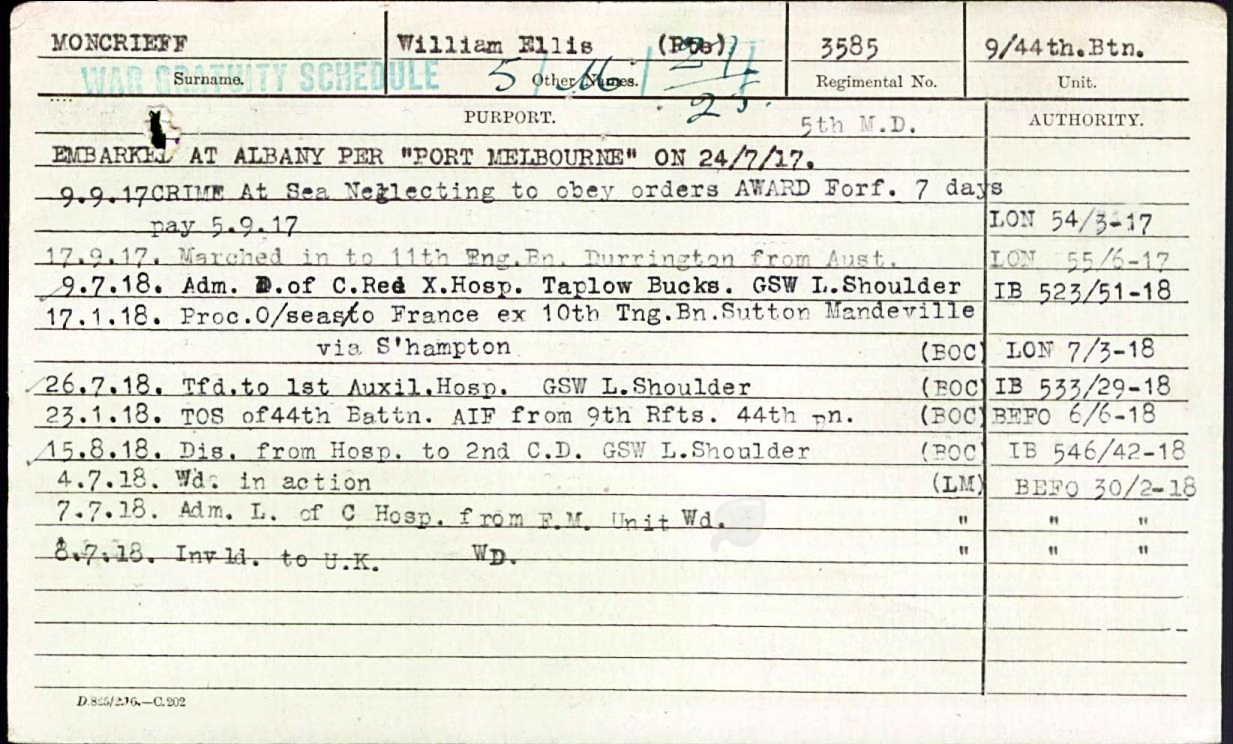 MONCRIEFF William Ellis (Pte) 3585 9/44th.Btn.
WAR GRATUITY SCHEDULE
Surname. Other Names. Regimental No. Unit.
PURPORT. 5th M.D. AUTHORITY.
EMBARKED AT ALBANY PER "PORT MELBOURNE" ON 24/7/17.
9.9.17 CRIME At Sea Neglecting to obey orders AWARD Forf. 7 days
pay 5.9.17 LON 54/3-17
17.9.17. Marched in to 11th Eng.Bn. Durrington from Aust. LON 55/6-17
9.7.18. Adm. D.of C.Red X.Hosp. Taplow Bucks. GSW L.Shoulder IB 523/51-18
17.1.18. Proc.O/seas/to France ex 10th Tng.Bn.Sutton Mandeville
via S'hampton (BOC) LON 7/3-18
26.7.18. Tfd.to 1st Auxil.Hosp. GSW L.Shoulder (BOC) IB 533/29-18
23.1.18. TOS of44th Battn. AIF from 9th Rfts. 44th Bn. (BOC) BEFO 6/6-18
15.8.18. Dis. from Hosp. to 2nd C.D. GSW L.Shoulder (BOC) IB 546/42-18
4.7.18. Wd. in action (LM) BEFO 30/2-18
7.7.18. Adm. L. of C Hosp. from F.M. Unit Wd. " " "
8.7.18. Invld. to U.K. WD. " " "